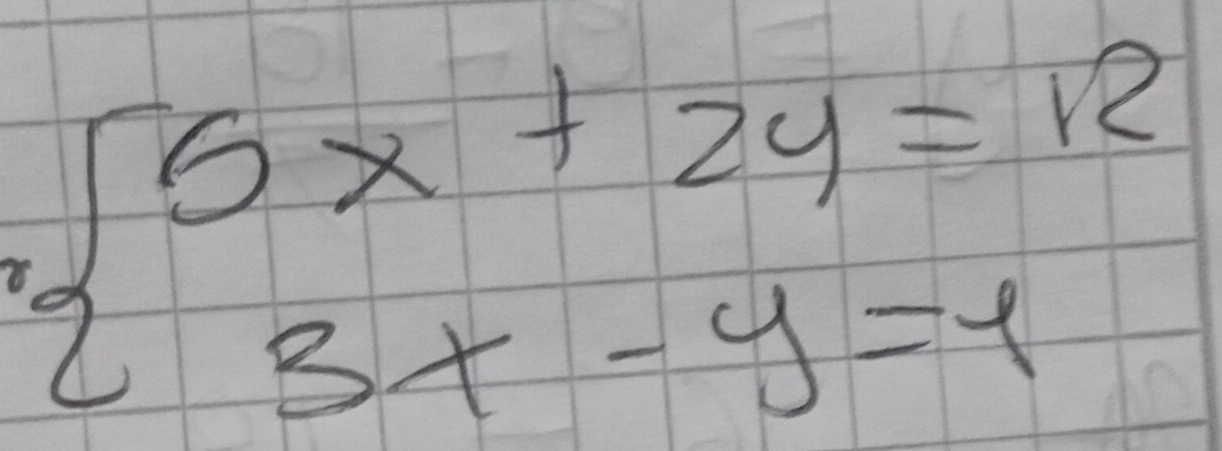 5x + 2y = 12
3x - y = 1